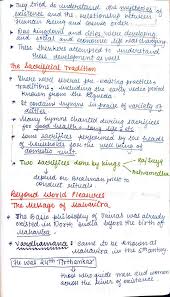 • they tried to understand the mysteries of
existence and the relationship between
human being and cosmic order
• New kingdoms and cities were developing
and social and economic life was changing
• These thinkers attempted to understand
these developments as well
The Sacrificial Tradition
• There were several pre-existing practices,
traditions, including the early vedic period
known from the Rigveda
• It contains hymns in praise of variety of
deities
• Many hymns chanted during sacrifices
for good health, long life etc
• Some sacrifices performed by the heads
of households for the well being of
domestic unit
• Two sacrifices done by kings
Rajasuya
Ashvamedha
depend on Brahman priest to
conduct rituals
Beyond World Pleasures
The Message of Mahavira
• The basic philosophy of Jainas was already
existed in North India before the birth of
Mahavira
• Vardhamana: came to be known as
Mahavira in the 6th century
He was 24th Tirthankar
Those who guide men and women
across the river of existence